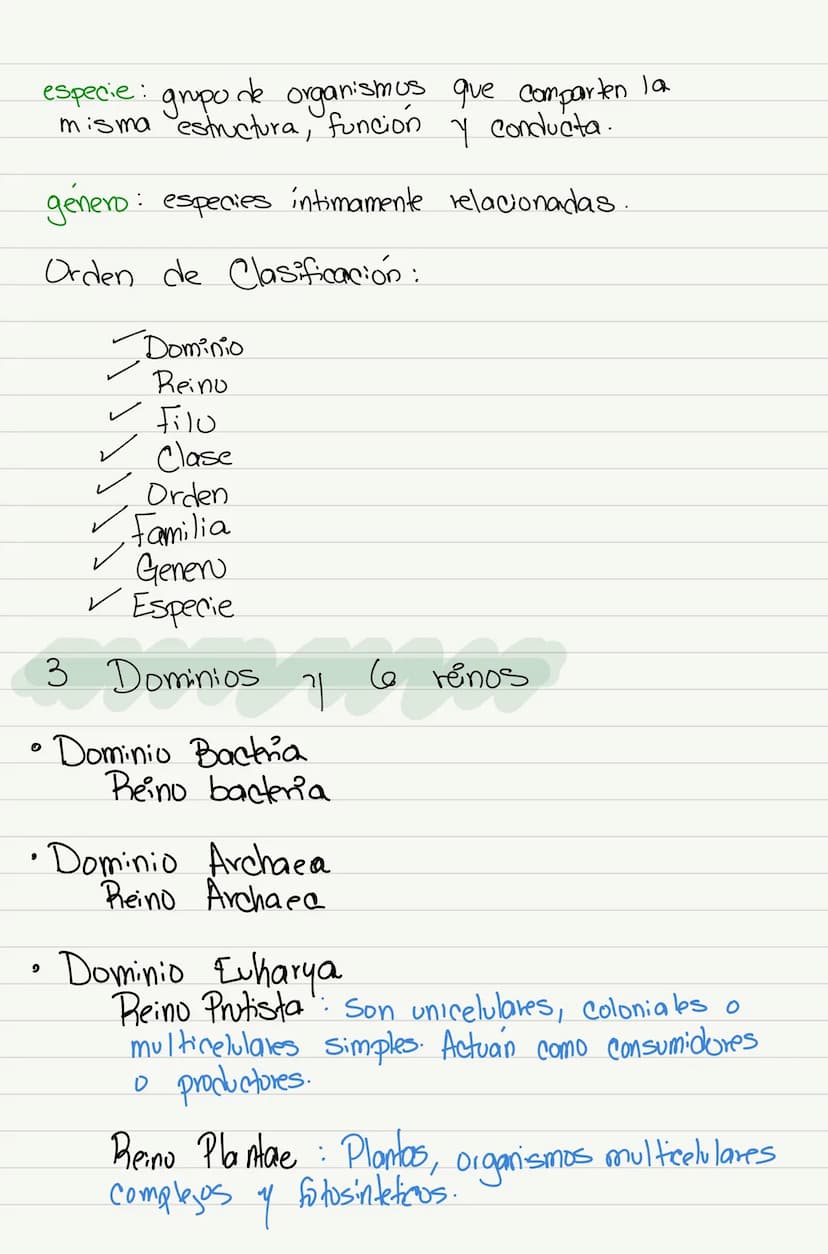 especie: grupo de organismos que comparten la
misma estructura, función y conducta.
género: especies íntimamente relacionadas.
Orden de Clasificación:
Dominio
Reino
Filo
Clase
Orden
Familia
Genero
Especie
3 Dominios y 6 reinos
• Dominio Bacteria
Reino bacteria
• Dominio Archaea
Reino Archaea
• Dominio Eukarya
Reino Protista: Son unicelulares, coloniales o
multicelulares simples. Actuán como consumidores
o productores.
Reino Plantae: Plantas, organismos multicelulares
complejos y fotosinteticos.